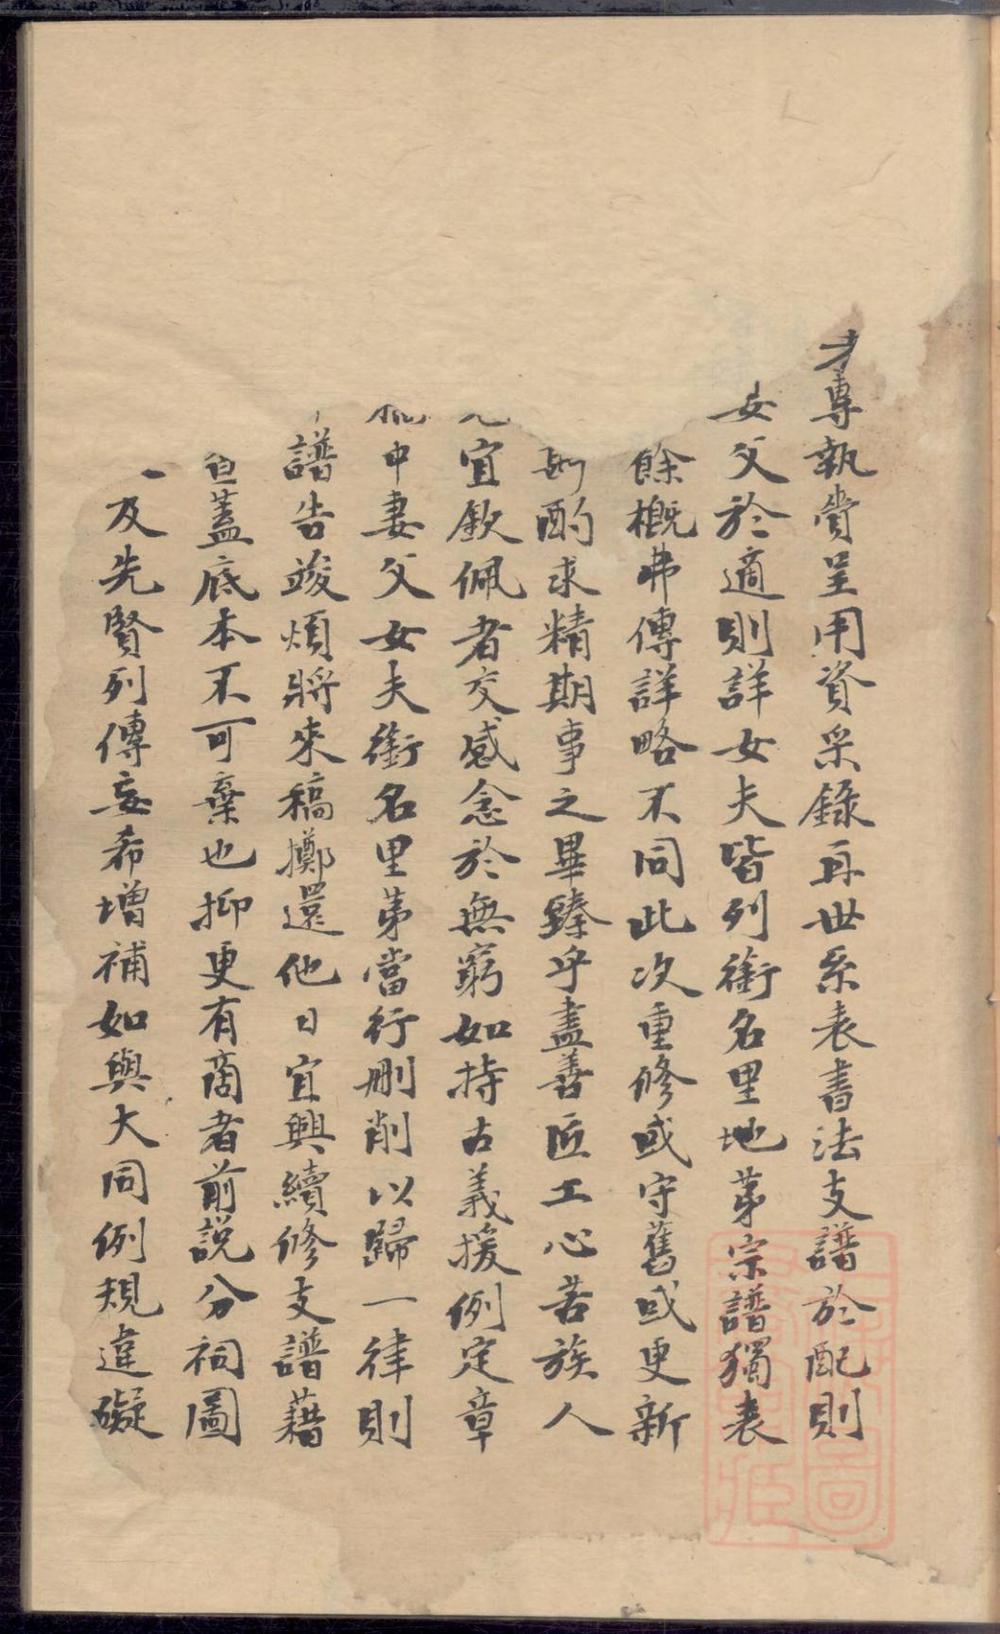 專執赍呈用資采錄再世系表書法支譜於配則
女父於適則詳女夫皆列銜名里地茅宗譜獨表
餘概弗傳詳略不同此次重修或守舊或更新
斟酌求精期事之畢臻乎盡善匠工心苦族人
宜欽佩者交感念於無窮如持古義援例定章
中妻父女夫銜名里茅當行刪削以歸一律則
譜告竣煩將來稿擲還他日宜興續修支譜藉
蓋底本不可棄也抑更有商者前説分祠圖
及先賢列傳妄希增補如與大同例規違礙